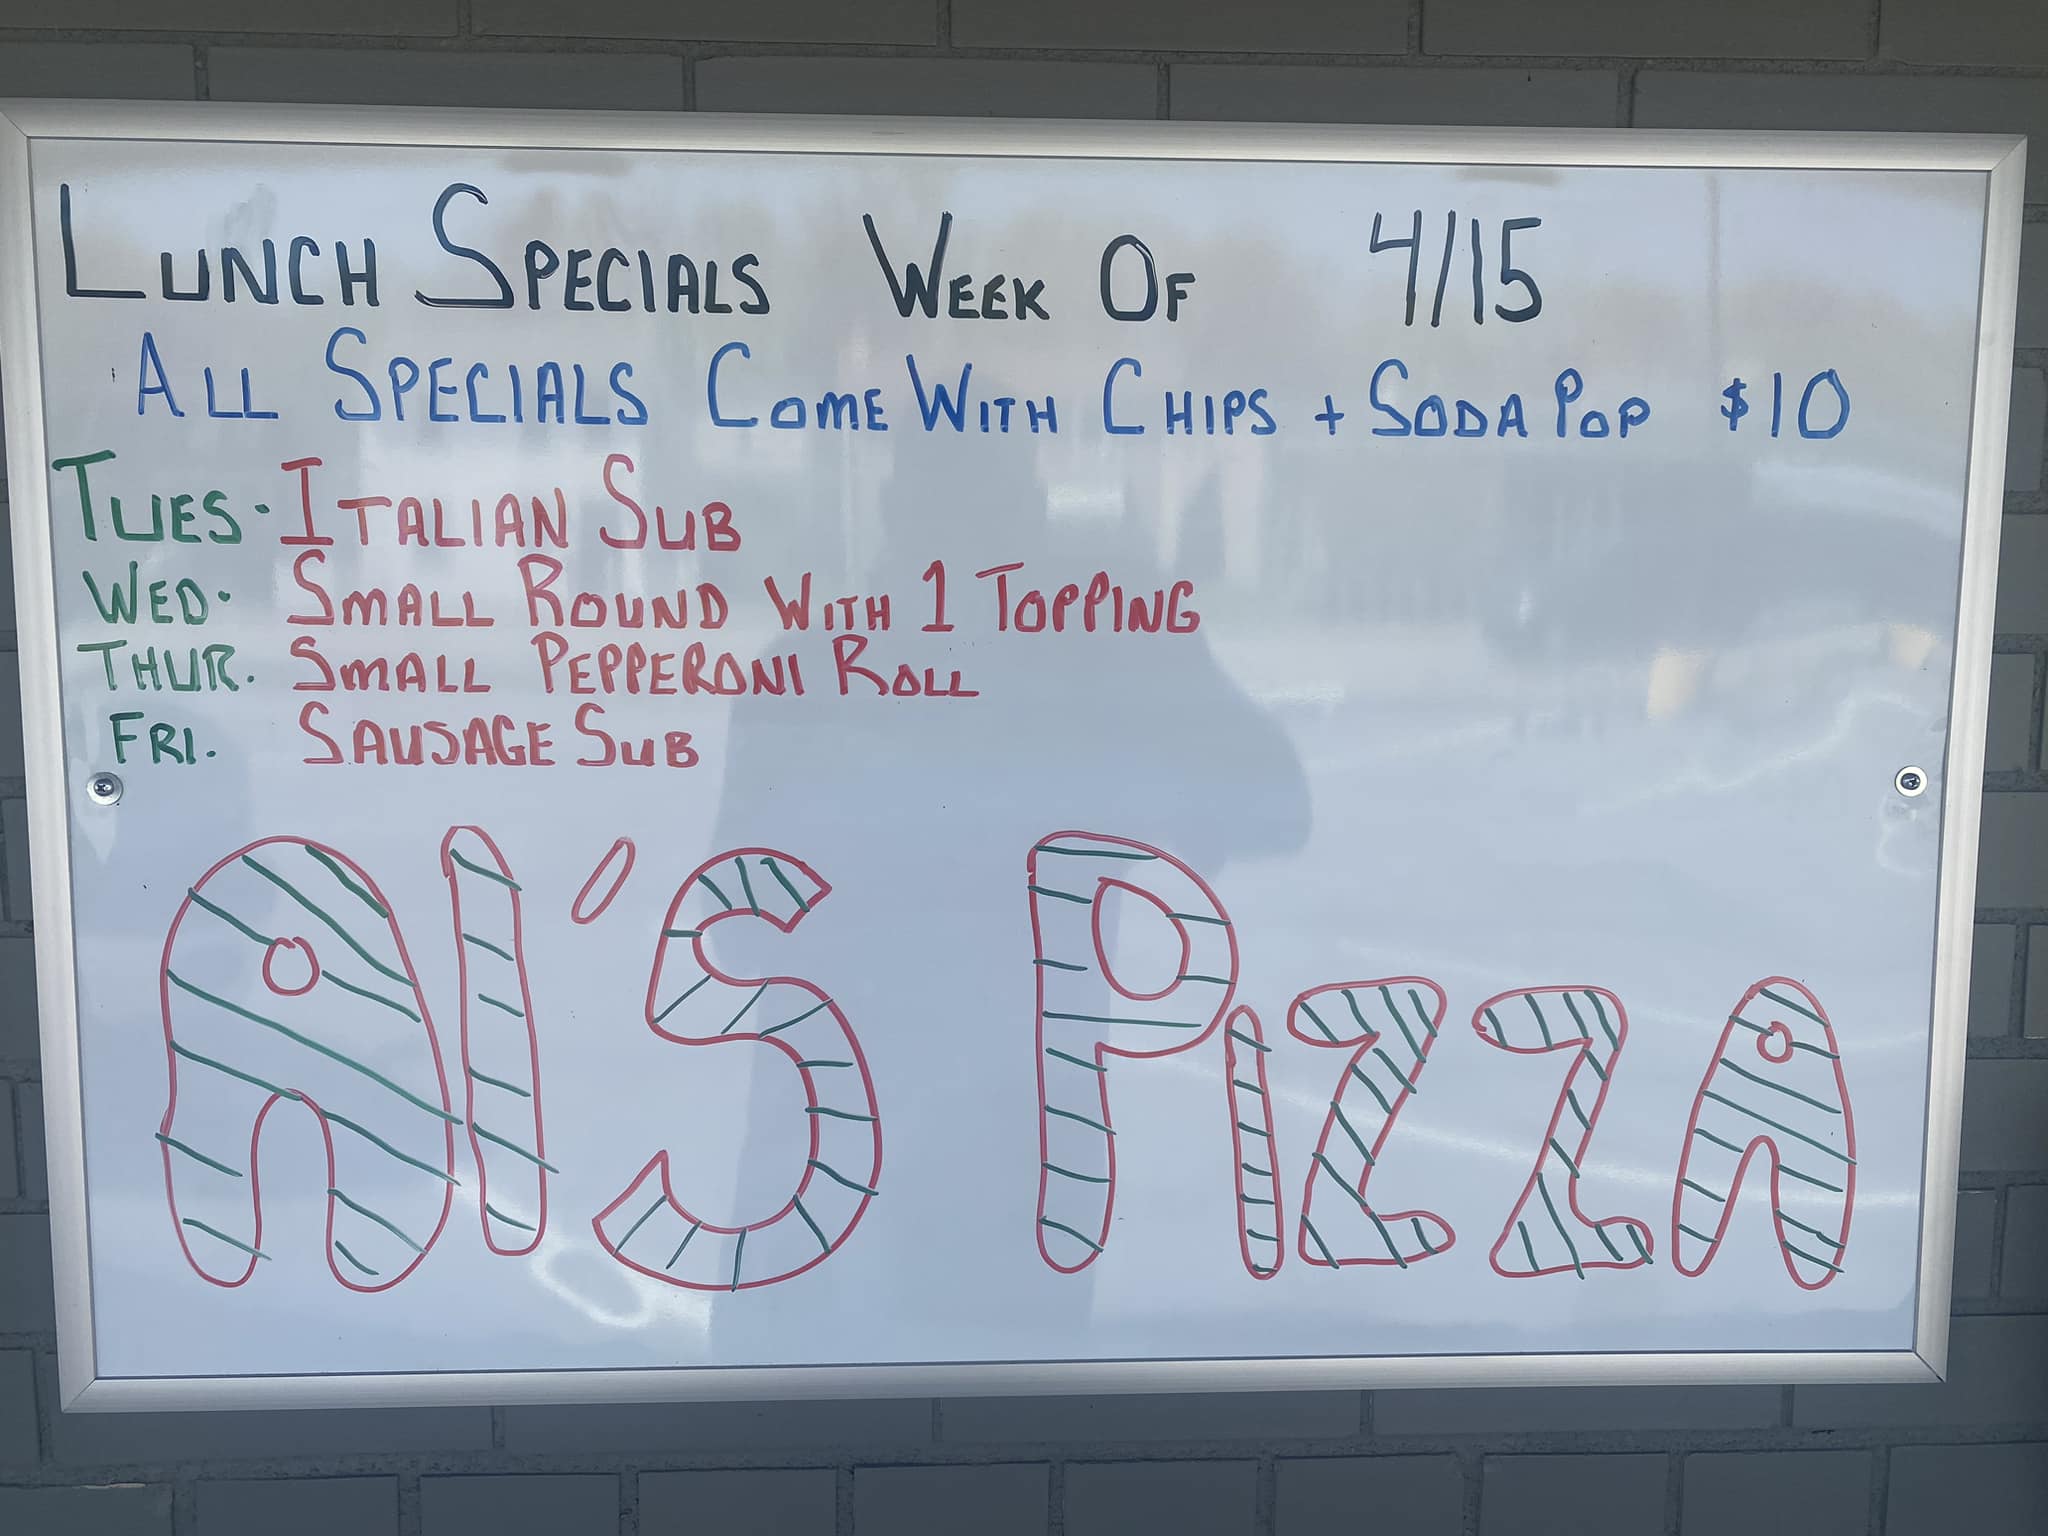 LUNCH SPECIALS WEEK OF 4/15
ALL SPECIALS COME WITH CHIPS + SODA POP $10
TUES. ITALIAN SUB
WED. SMALL ROUND WITH 1 TOPPING
THUR. SMALL PEPPERONI ROLL
FRI. SAUSAGE SUB
Al's Pizza